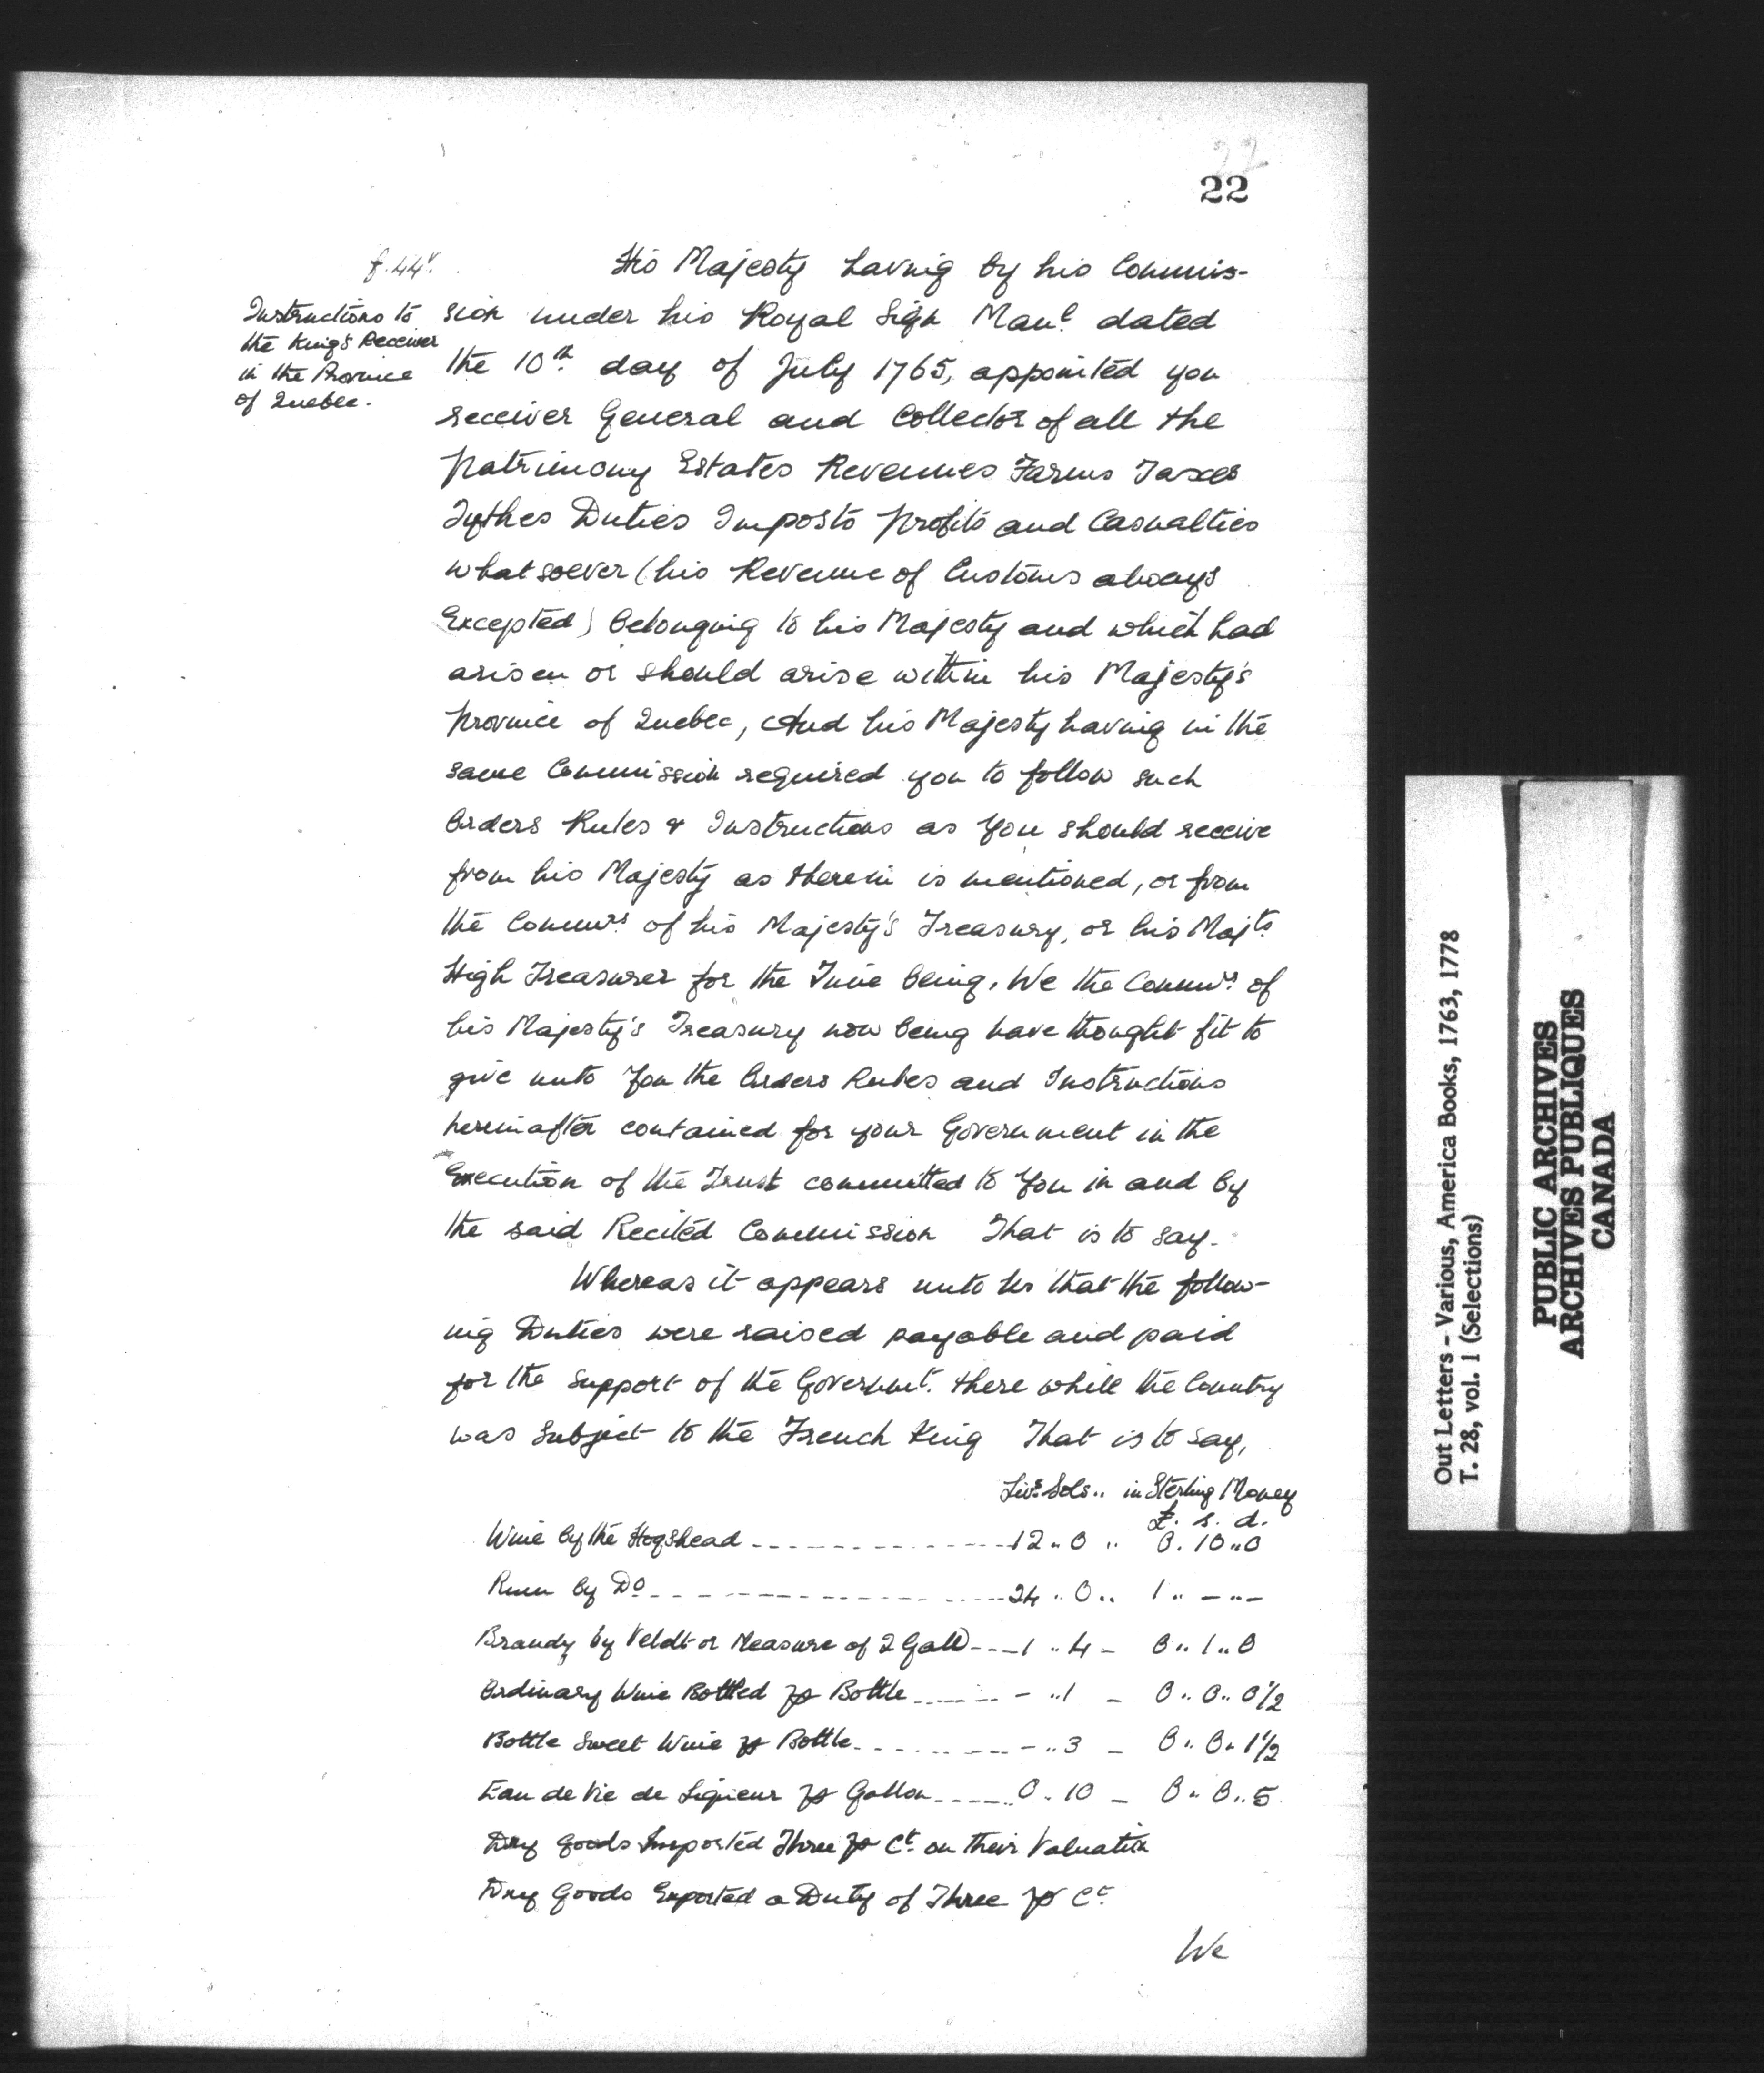 22
22
f. 44v.
Instructions to
the King's Receiver
in the Province
of Quebec.
His Majesty having by his Commis-
sion under his Royal Sign Manl dated
the 10th day of July 1765, appointed you
receiver General and Collector of all the
patrimony Estates Revenues Farms Taxes
Tythes Duties Imposts profits and Casualties
whatsoever (his Revenue of Customs always
Excepted) belonging to his Majesty and which had
arisen or should arise within his Majesty's
province of Quebec, And his Majesty having in the
same Commission required you to follow such
Orders Rules & Instructions as You should receive
from his Majesty as therein is mentioned, or from
the Commrs of his Majesty's Treasury, or his Majts
High Treasurer for the Time being, We the Commrs of
his Majesty's Treasury now being have thought fit to
give unto You the Orders Rules and Instructions
hereinafter contained for your Government in the
Execution of the Trust committed to You in and by
the said Recited Commission That is to say.
Whereas it appears unto Us that the follow-
ing Duties were raised payable and paid
for the Support of the Governmt. there while the Country
was Subject to the French King That is to say,
Livs Sols .. in Sterling Money
£. s. d.
Wine by the Hogshead ---------- 12 " 0 " 0. 10 " 0
Rum by Do ---------- 24 " 0 .. 1 " - " -
Brandy by Veldt or Measure of 2 Galls --- 1 " 4 - 0 " 1 " 0
Ordinary Wine Bottled ⅌ Bottle ------ - " 1 - 0 " 0 " 0 1/2
Bottle Sweet Wine ⅌ Bottle ---------- - " 3 - 0 " 0 " 1 1/2
Eau de Vie de Liqueur ⅌ Gallon ----- 0 . 10 - 0 " 0 " 5
Dry goods Imported Three ⅌ Ct. on their Valuation
Dry Goods Exported a Duty of Three ⅌ Ct
We
Out Letters - Various, America Books, 1763, 1778
T. 28, vol. 1 (Selections)
PUBLIC ARCHIVES
ARCHIVES PUBLIQUES
CANADA